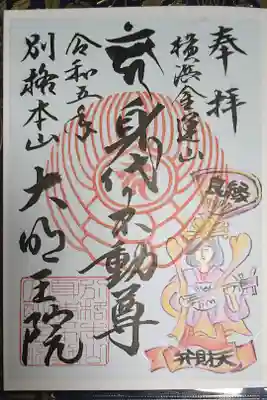 奉拝
横浜金運山
身代不動尊
令和五年
別格本山
大明王院
良縁
弁財天